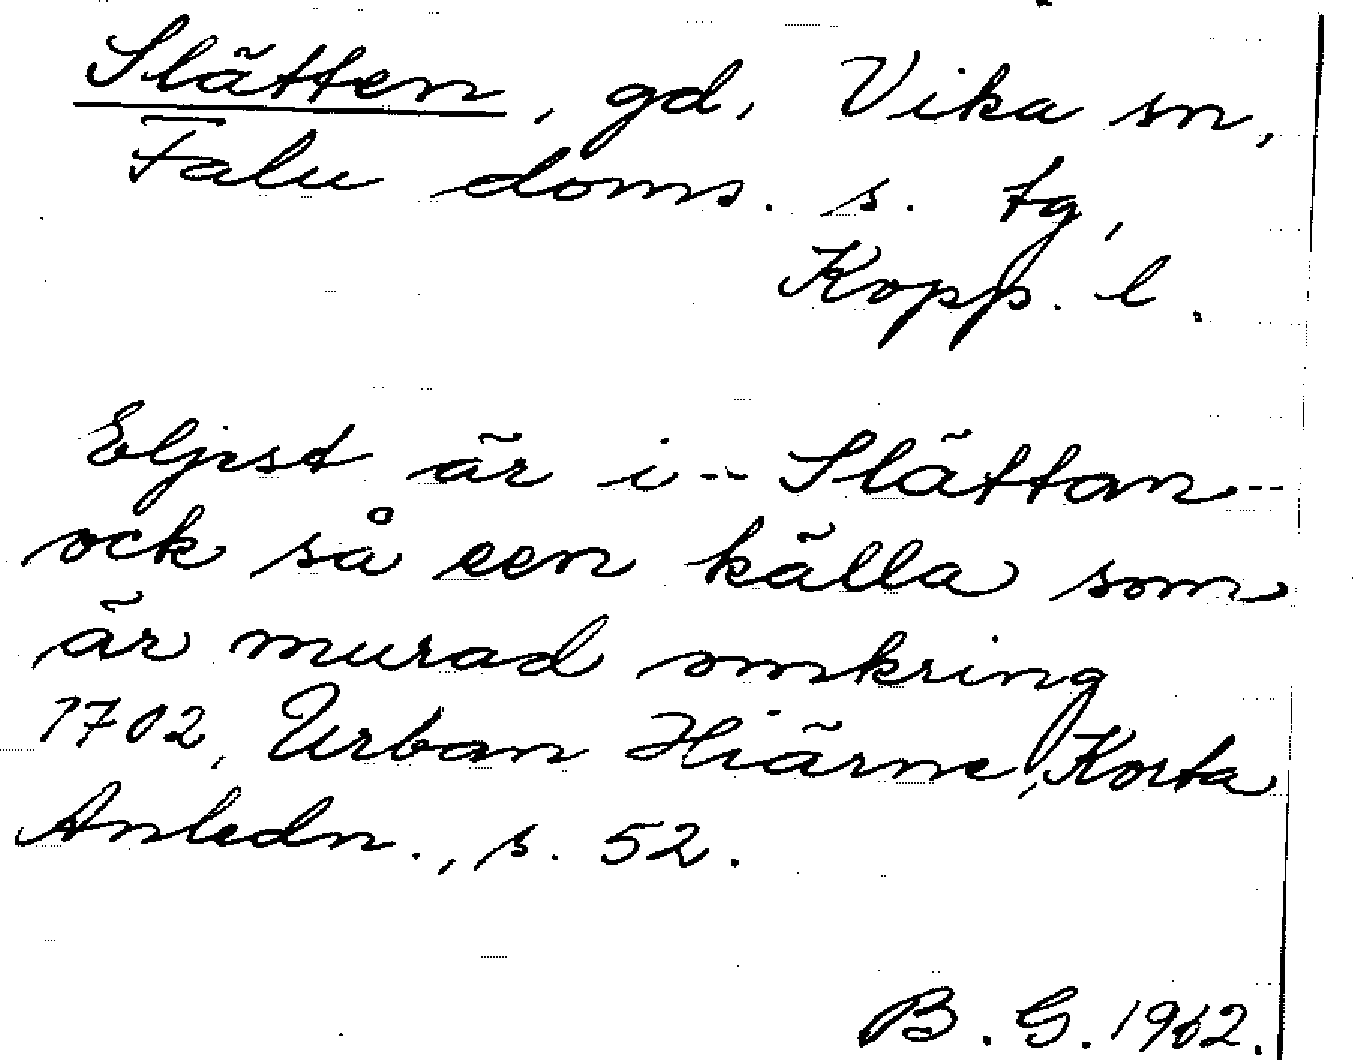 Slätten, gd, Vika sn,
Falu doms. s. tg,
Kopp. l.
Eljest är i -- Slättan --
ock så een källa som
är murad omkring
1702, Urban Hiärne, Korta
Anledn., s. 52.
B. G. 1962.